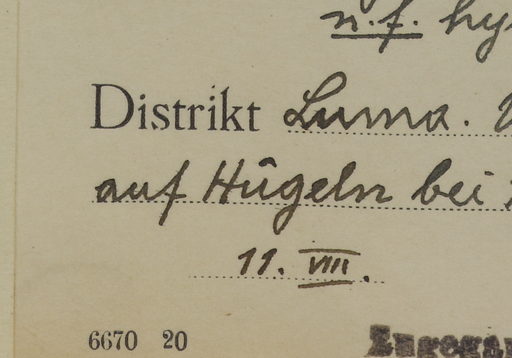 n.f.
Distrikt Luma.
auf Hügeln bei
11. VIII.
6670 20